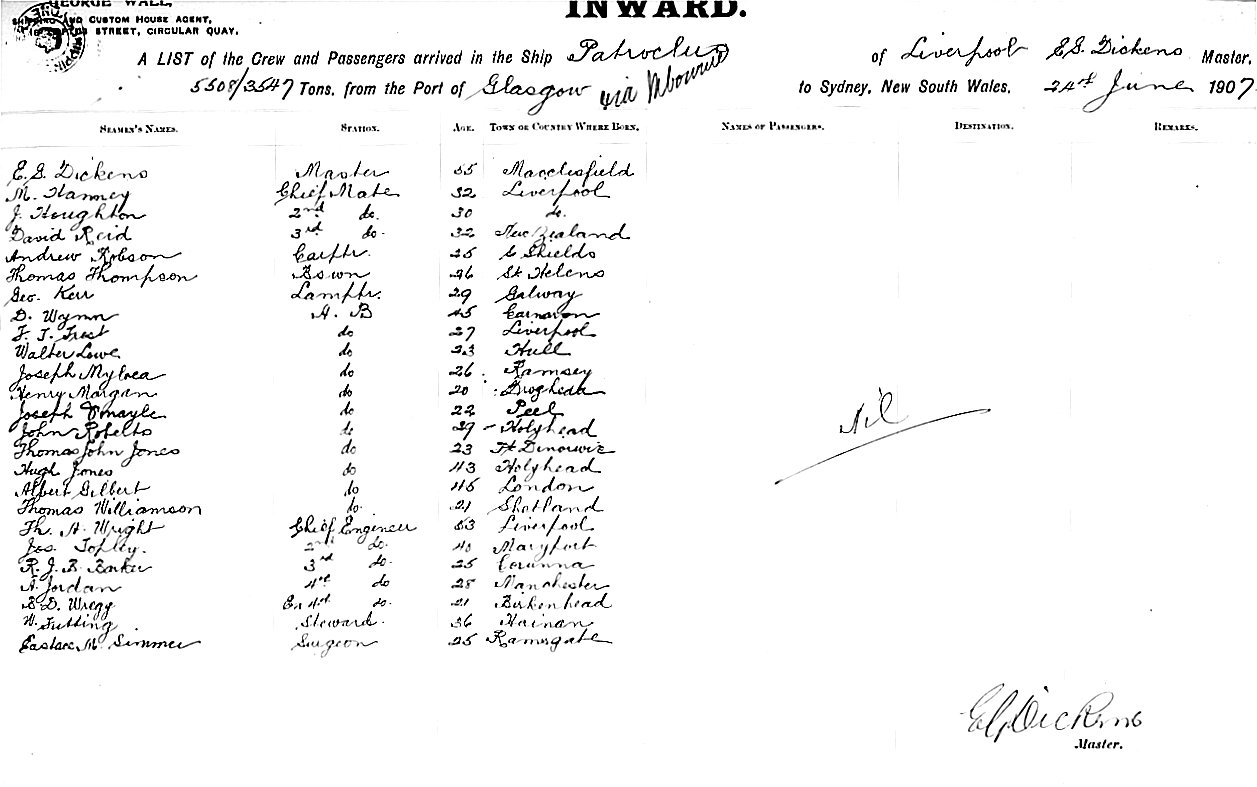 GEORGE WALL,
INWARD.
SHIPPING AND CUSTOM HOUSE AGENT,
STREET, CIRCULAR QUAY.
A LIST of the Crew and Passengers arrived in the Ship Patroclus of Liverpool E.G. Dickens Master,
5508/3547 Tons, from the Port of Glasgow via Mbourne to Sydney, New South Wales, 24th June 1907
SEAMEN'S NAMES. STATION. AGE. TOWN OR COUNTRY WHERE BORN. NAMES OF PASSENGERS. DESTINATION. REMARKS.
E.G. Dickens Master 55 Macclesfield
M. Hanney Chief Mate 32 Liverpool
J. Houghton 2nd do. 30 do.
David Reid 3rd do. 32 New Zealand
Andrew Robson Carptr. 25 S Shields
Thomas Thompson Bswn 26 St Helens
Geo. Kerr Lamptr. 29 Galway
D. Wynn A. B 45 Carnarvon
F. J. Frost do 27 Liverpool
Walter Lowe do 23 Hull
Joseph Mylrea do 26 Ramsey
Henry Morgan do 20 Drogheda
Joseph Quayle do 22 Peel
John Roberts do 29 Holyhead
Thomas John Jones do 23 Pt Dinorwic
Hugh Jones do 43 Holyhead
Albert Gilbert do 45 London
Thomas Williamson do. 21 Shetland
Th. A. Wright Chief Engineer 53 Liverpool
Jos. Topley. 2nd do. 40 Maryport
R. J. B. Barker 3rd do. 25 Corunna
A. Jordan 4th do 28 Manchester
B D. Wregg Ex 4th do. 21 Birkenhead
W. Tutting Steward. 36 Hainan
Eustace M. Simmer Surgeon 25 Ramsgate
Nil
E G Dickens
Master.